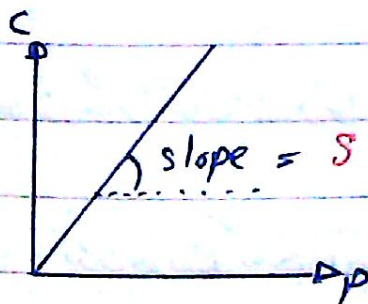 C
slope = S
p